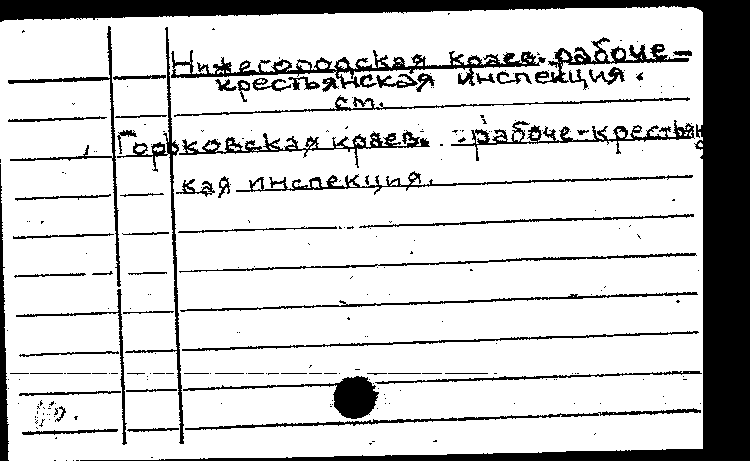 Нижегородская краев. рабоче-
крестьянская инспекция.
см.
Горьковская краев. рабоче-крестьянс
кая инспекция.